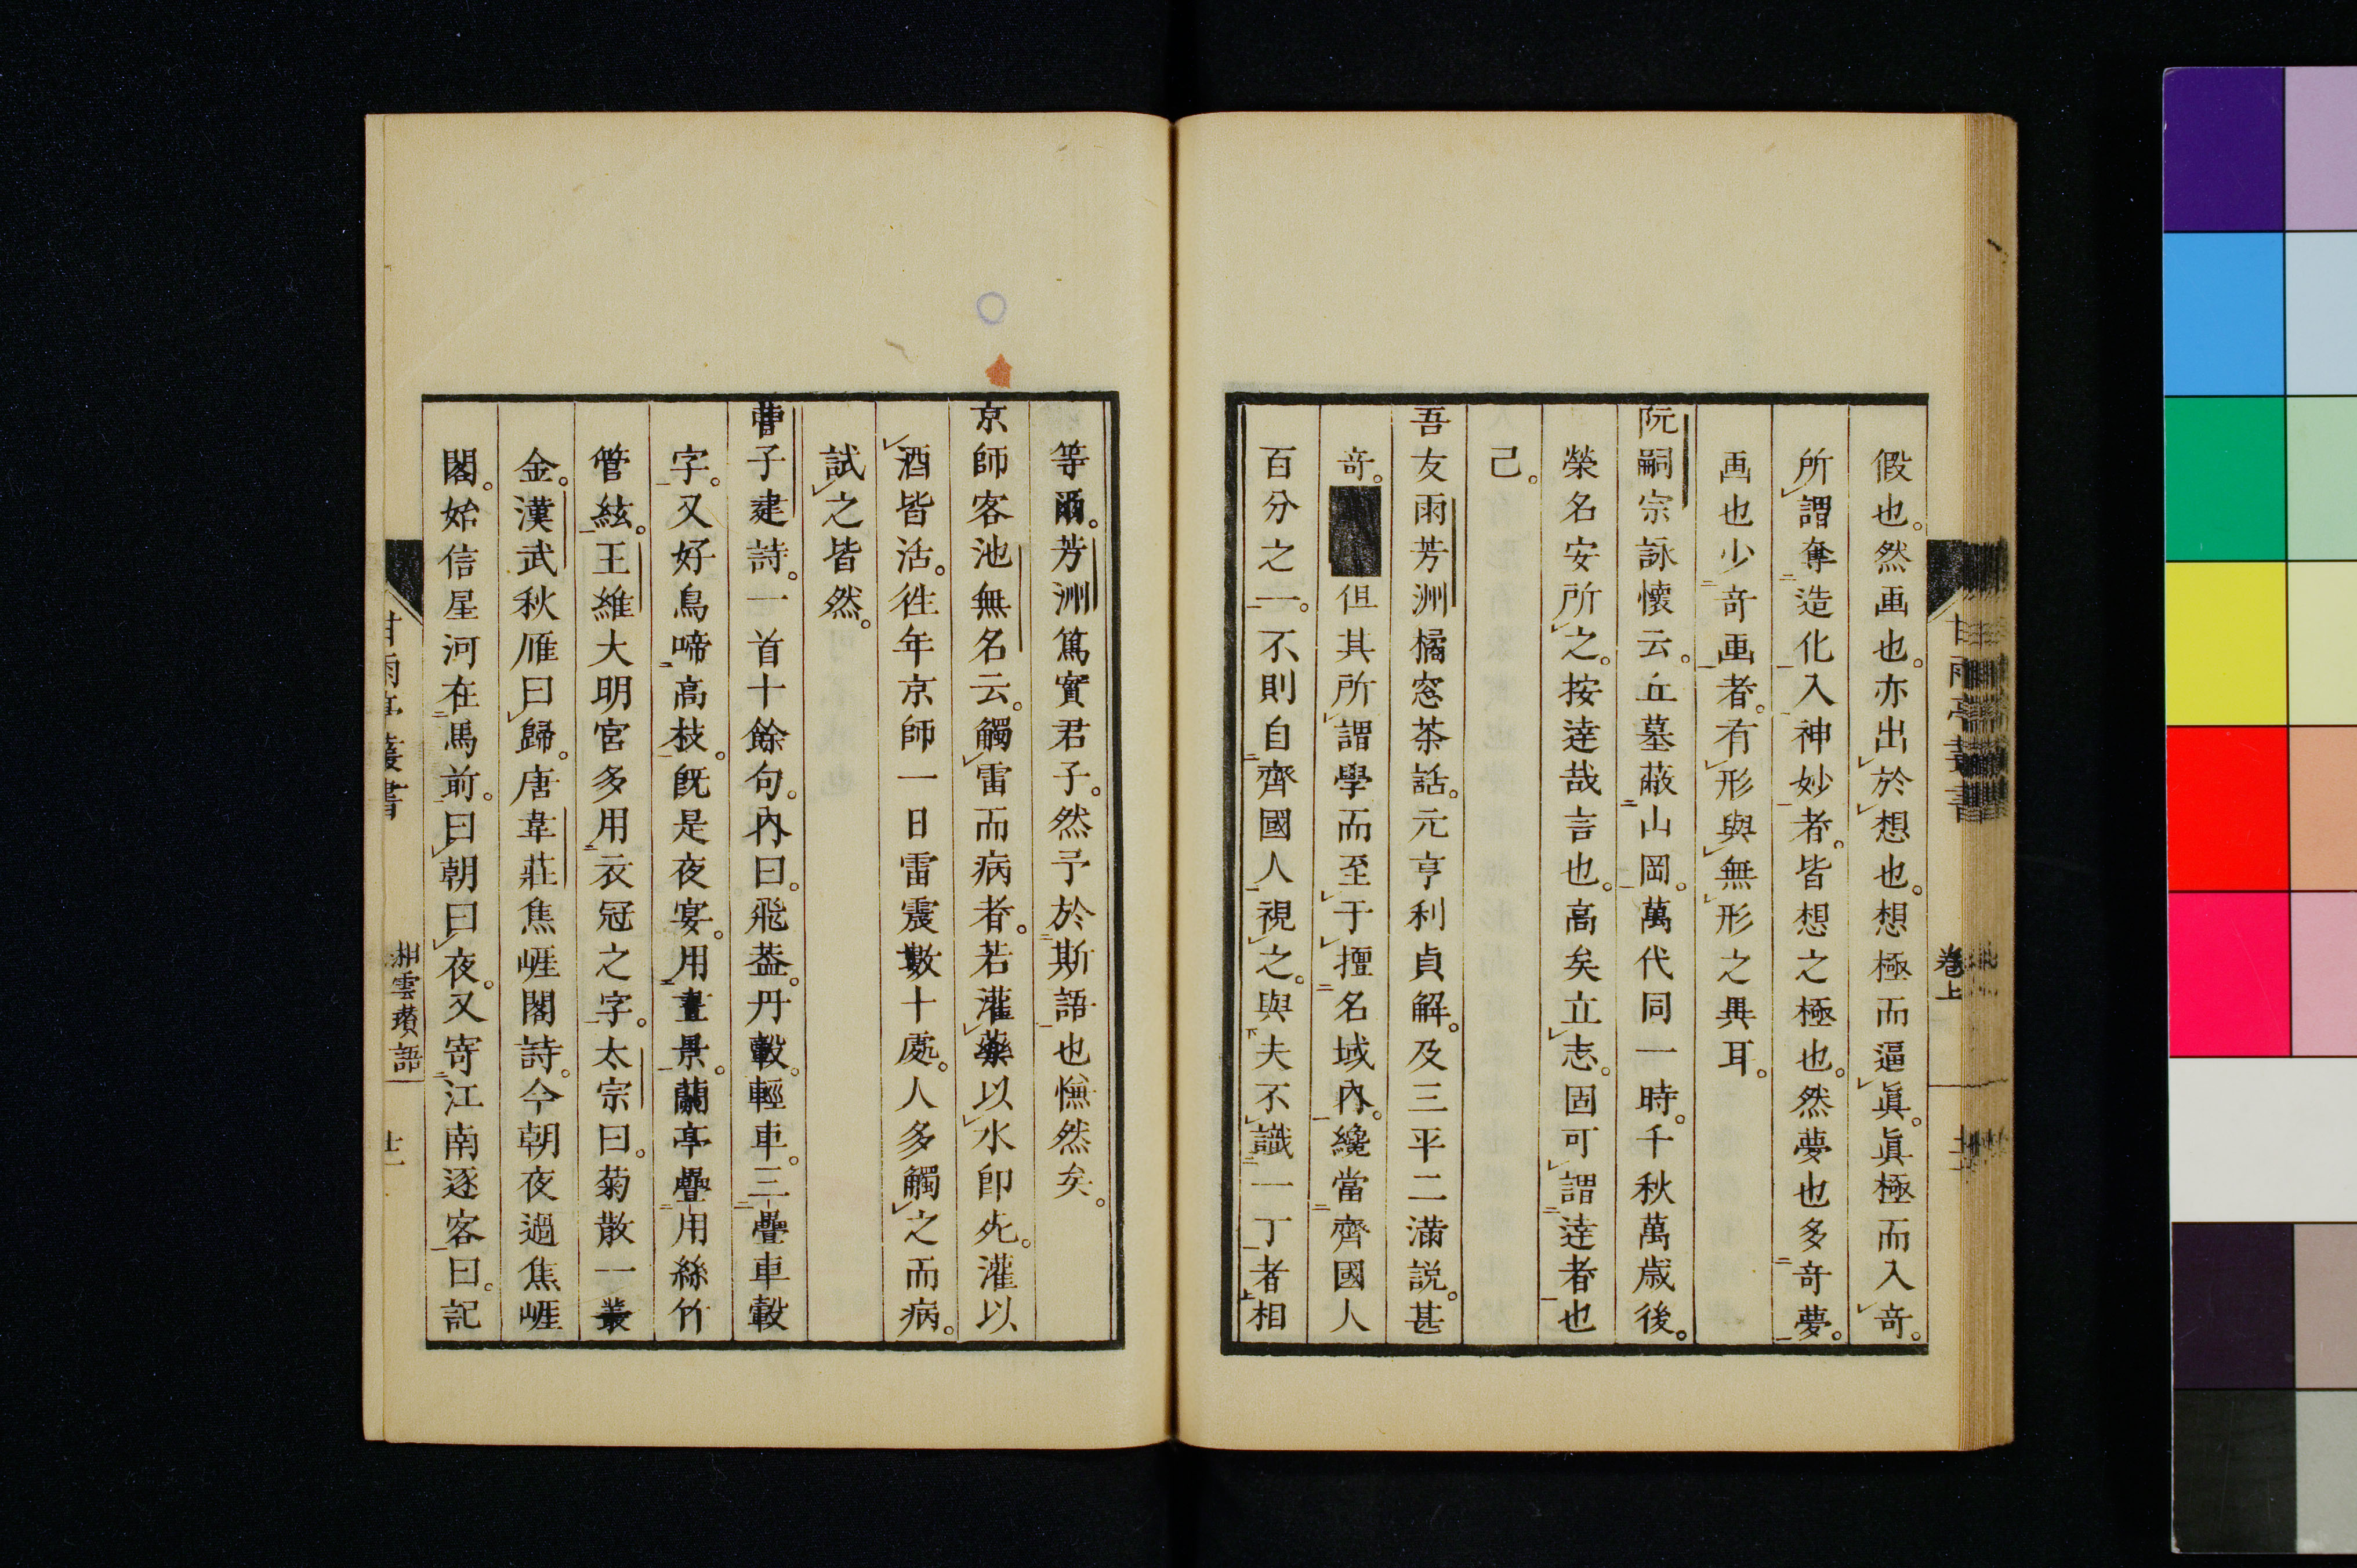 假也。然画也。亦出於想也。想極而逼眞。眞極而入奇。
所謂奪造化入神妙者。皆想之極也。然夢也多奇夢。
画也少奇画者。有形與無形之異耳。
阮嗣宗詠懷云。丘墓蔽山岡。萬代同一時。千秋萬歳後。
榮名安所之。按達哉言也。高矣立志。固可謂達者也
己。
吾友雨芳洲橘窓茶話。元亨利貞解。及三平二滿説。甚
奇。但其所謂學而至于擅名域內。纔當齊國人
百分之一。不則自齊國人視之。與夫不識一丁者相
等爾。芳洲篤實君子。然予於斯語也憮然矣。
京師客池無名云。觸雷而病者。若灌藥以水卽死。灌以
酒皆活。徃年京師一日雷震數十處。人多觸之而病。
試之皆然。
曹子建詩。一首十餘句。內曰。飛葢。丹轂。輕車。三疊車轂
字。又好鳥啼高枝。旣是夜宴。用晝景。蘭亭疊用絲竹
管絃。王維大明宮多用衣冠之字。太宗曰。菊散一叢
金。漢武秋雁曰歸。唐韋莊焦崕閣詩。今朝夜過焦崕
閣。始信星河在馬前。曰朝曰夜。又寄江南逐客曰。記
甘雨亭叢書
卷上
湘雲瓚語